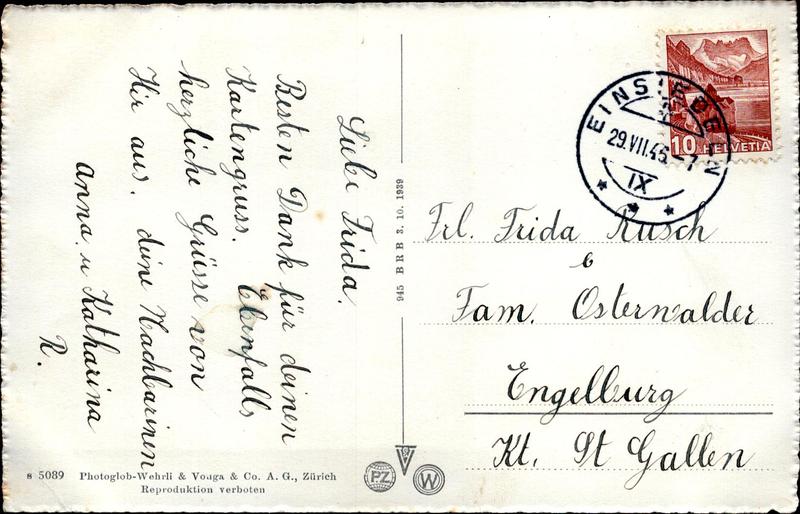 Liebe Frida.
Besten Dank für deinen
Kartengruss. Ebenfalls
herzliche Grüsse von
Hir aus. deine Nachbarinen
Anna u Katharina
R.
945 BRB 3. 10. 1939
EINSIEDELN
29.VII.46-7
IX
10 HELVETIA
Frl. Frida Rusch
b
Fam. Osterwalder
Engelburg
Kt. St Gallen
s 5089 Photoglob-Wehrli & Vouga & Co. A. G., Zürich
Reproduktion verboten
PZ
W